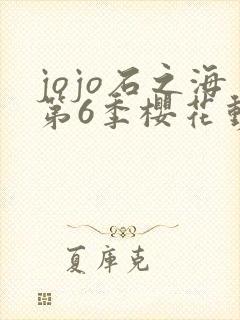 jojo石之海
第6季櫻花動
夏庫克